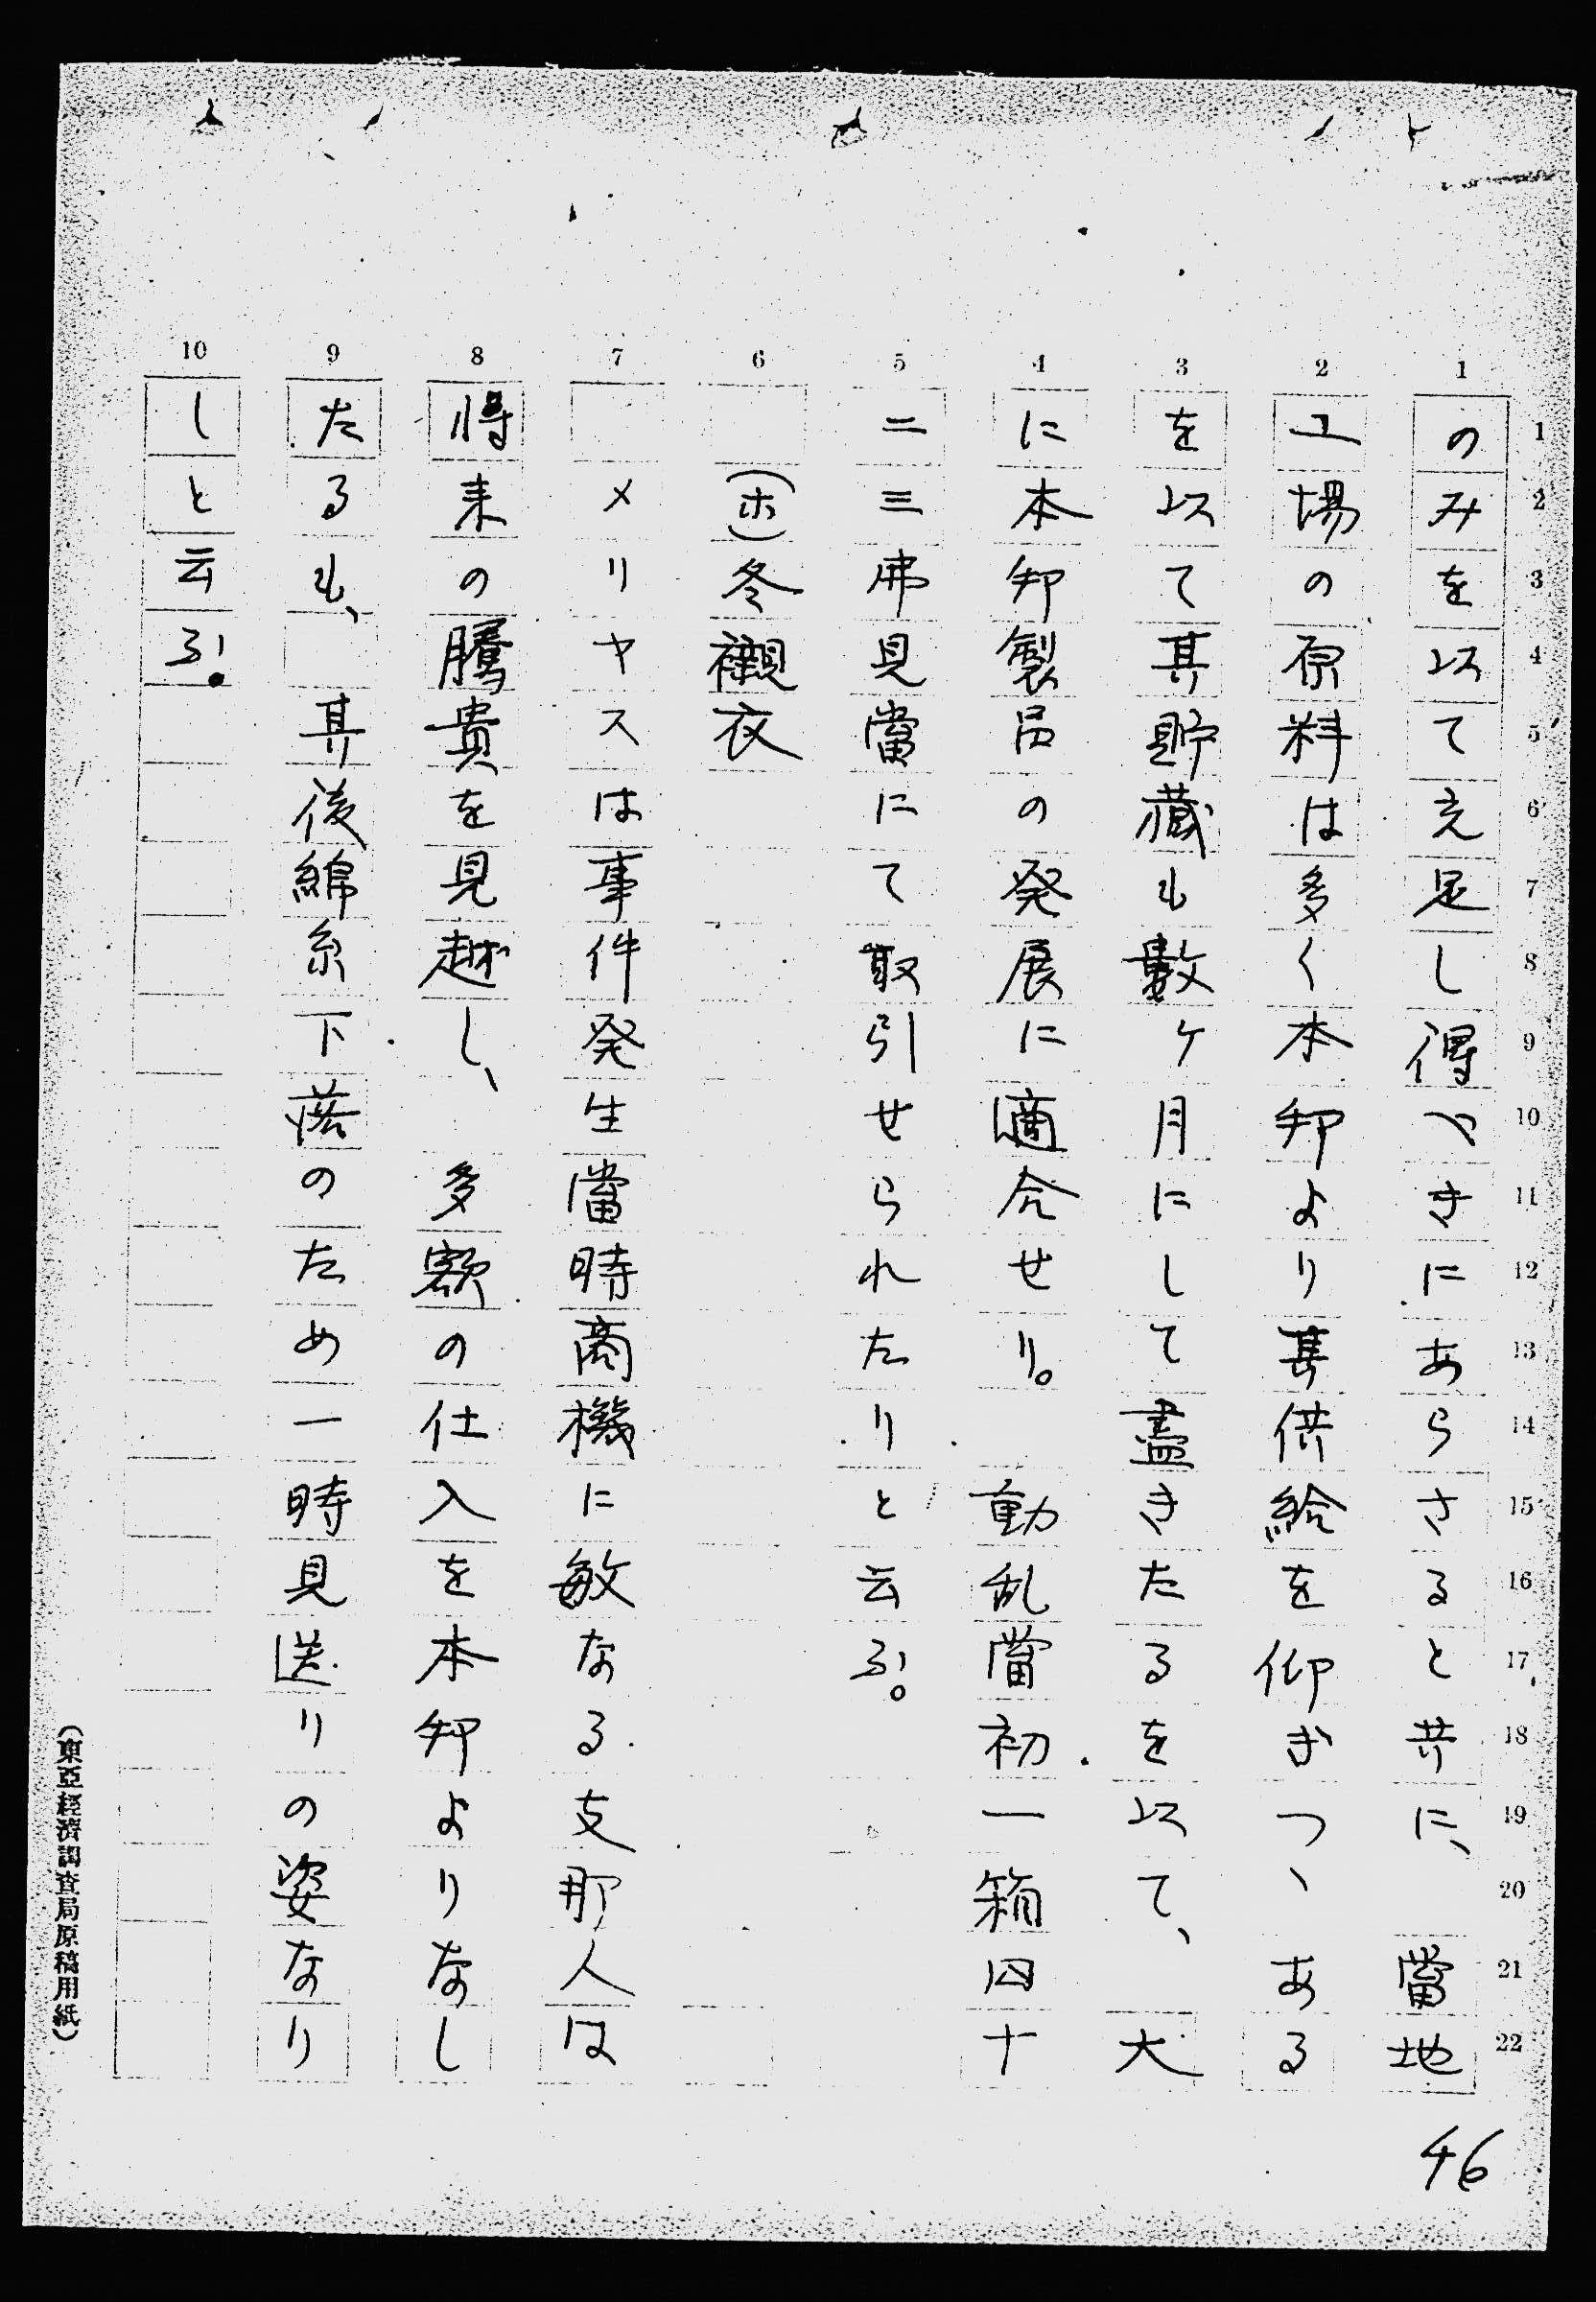 のみを以て充足し得べきにあらさると共に、當地
工場の原料は多く本邦より其供給を仰ぎつゝある
を以て其貯藏も數ケ月にして盡きたるを以て、大
に本邦製品の発展に適合せり。動乱當初一箱四十
二三弗見當にて取引せられたりと云ふ。
(ホ)冬襯衣
メリヤスは事件発生當時商機に敏なる支那人は
将来の騰貴を見越し、多額の仕入を本邦よりなし
たるも、其後綿糸下落のため一時見送りの姿なり
しと云ふ。
46
(東亞經濟調査局原稿用紙)
1 2 3 4 5 6 7 8 9 10
1 2 3 4 5 6 7 8 9 10 11 12 13 14 15 16 17 18 19 20 21 22